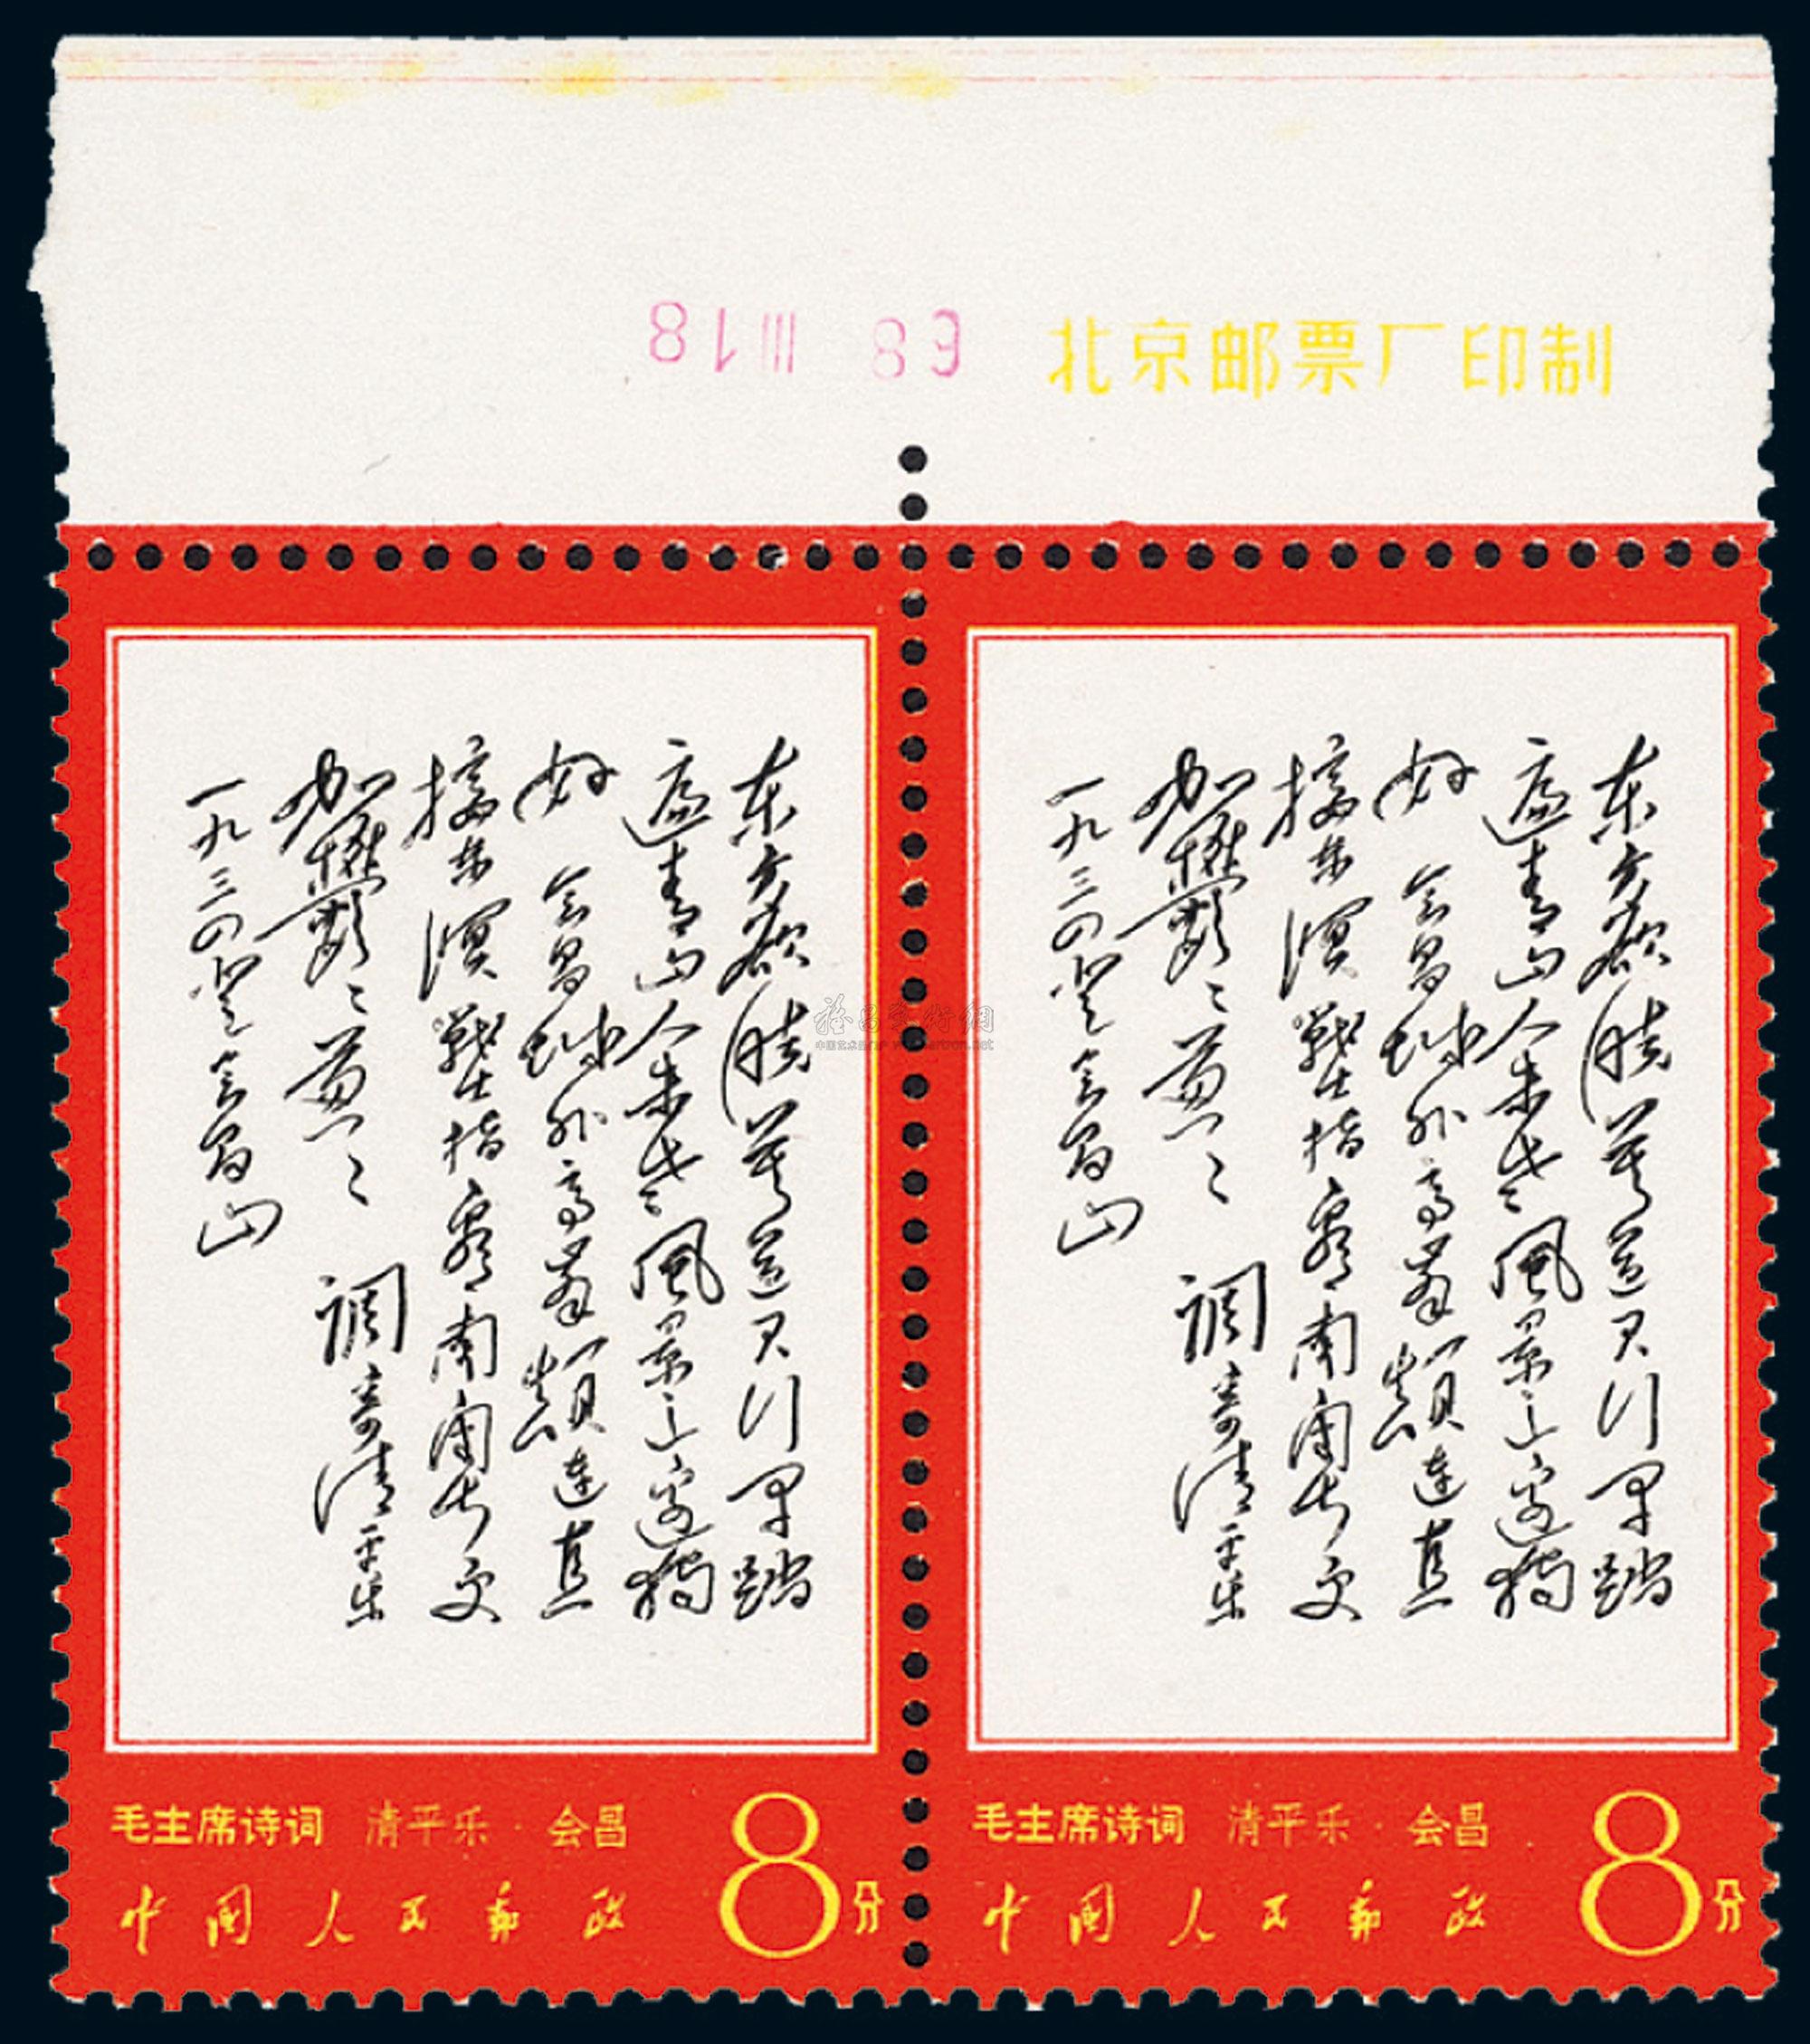 北京邮票厂印制
东方欲晓莫道君行早踏
遍青山人未老風景这边独
好 会昌城外高峯颠连直
接东溟戰士指看南粤更
加鬱々葱々 调寄清平乐
一九三四登会昌山
毛主席诗词 清平乐·会昌
中国人民邮政
8分
东方欲晓莫道君行早踏
遍青山人未老風景这边独
好 会昌城外高峯颠连直
接东溟戰士指看南粤更
加鬱々葱々 调寄清平乐
一九三四登会昌山
毛主席诗词 清平乐·会昌
中国人民邮政
8分